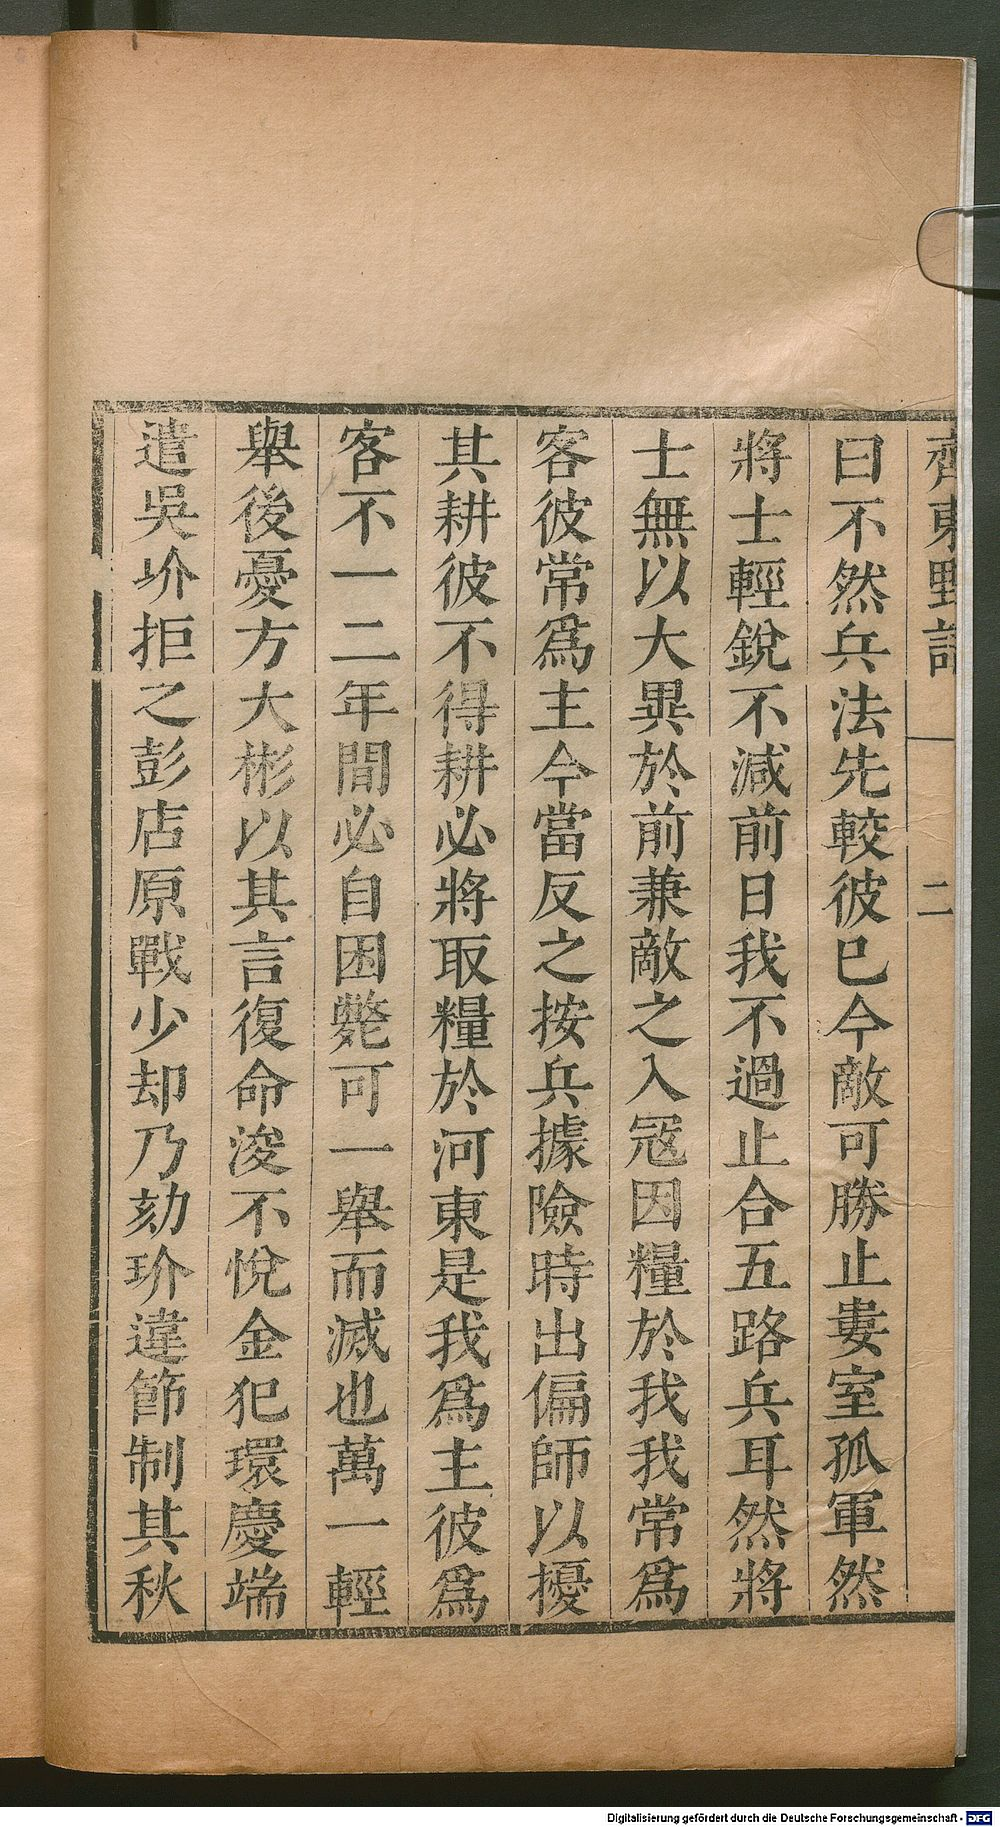 齊東野語 二
曰不然兵法先較彼已今敵可勝止婁室孤軍然
將士輕銳不減前日我不過止合五路兵耳然將
士無以大異於前兼敵之入冦因糧於我我常爲
客彼常爲主今當反之按兵據險時出偏師以擾
其耕彼不得耕必將取糧於河東是我爲主彼爲
客不一二年間必自困斃可一舉而滅也萬一輕
舉後憂方大彬以其言復命浚不悅金犯環慶端
遣吳玠拒之彭店原戰少却乃劾玠違節制其秋
Digitalisierung gefördert durch die Deutsche Forschungsgemeinschaft - DFG